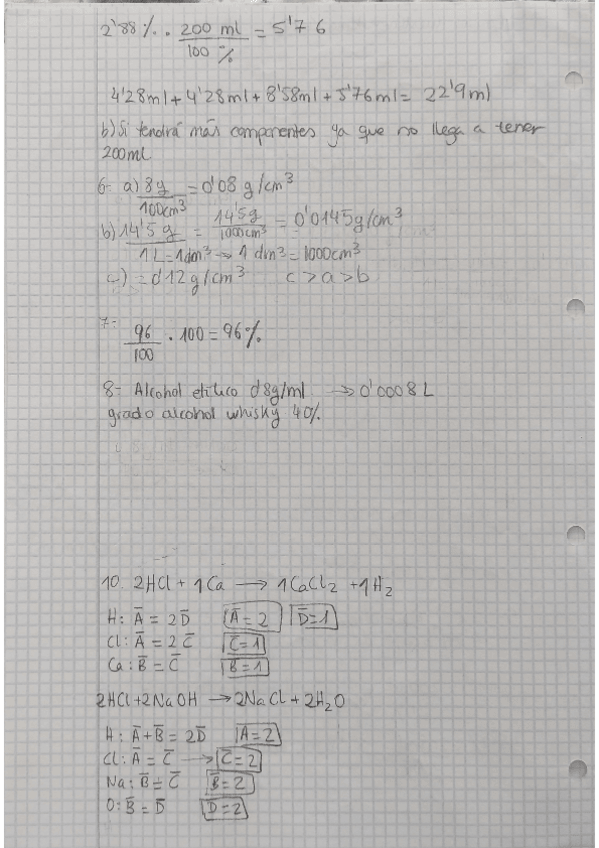 2'88 %. · 200 ml / 100 % = 5'76
4'28ml + 4'28ml + 8'58ml + 5'76ml = 22'9ml
b) Si tendrá más componentes ya que no llega a tener
200ml
6- a) 8g / 100cm³ = 0'08 g/cm³
b) 14'5 g / 1 L = 1dm³ → 1 dm³ = 1000cm³ = 14'5g / 1000cm³ = 0'0145g/cm³
c) = 0'12g/cm³ c > a > b
7- 96 / 100 · 100 = 96%
8- Alcohol etílico 0'8g/ml → 0'0008 L
grado alcohol whisky 40%
10. 2HCl + 1Ca → 1CaCl₂ + 1H₂
H: A̅ = 2D̅ A̅ = 2 D̅ = 1
Cl: A̅ = 2C̅ C̅ = 1
Ca: B̅ = C̅ B̅ = 1
2HCl + 2NaOH → 2NaCl + 2H₂O
H: A̅ + B̅ = 2D̅ A̅ = 2
Cl: A̅ = C̅ → C̅ = 2
Na: B̅ = C̅ B̅ = 2
O: B̅ = D̅ D̅ = 2